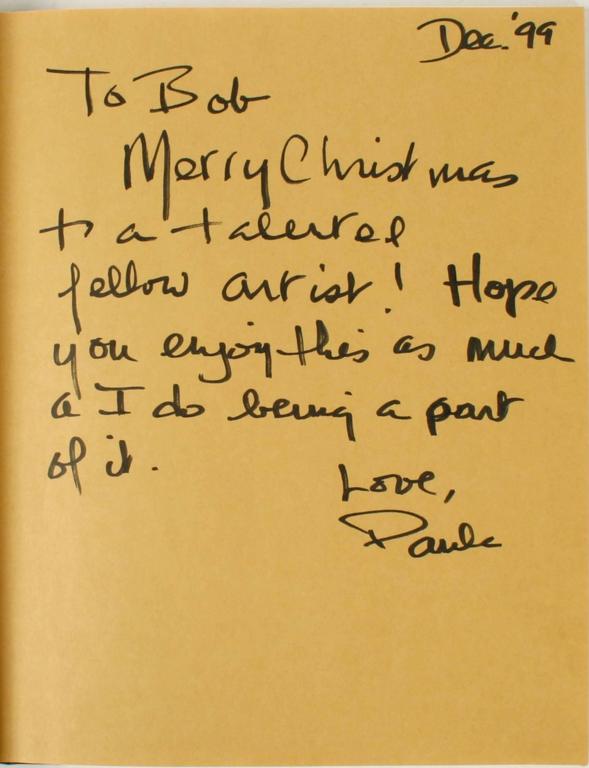 Dec. '99
To Bob
Merry Christmas
to a talented
fellow artist! Hope
you enjoy this as much
a I do being a part
of it.
Love,
Paula